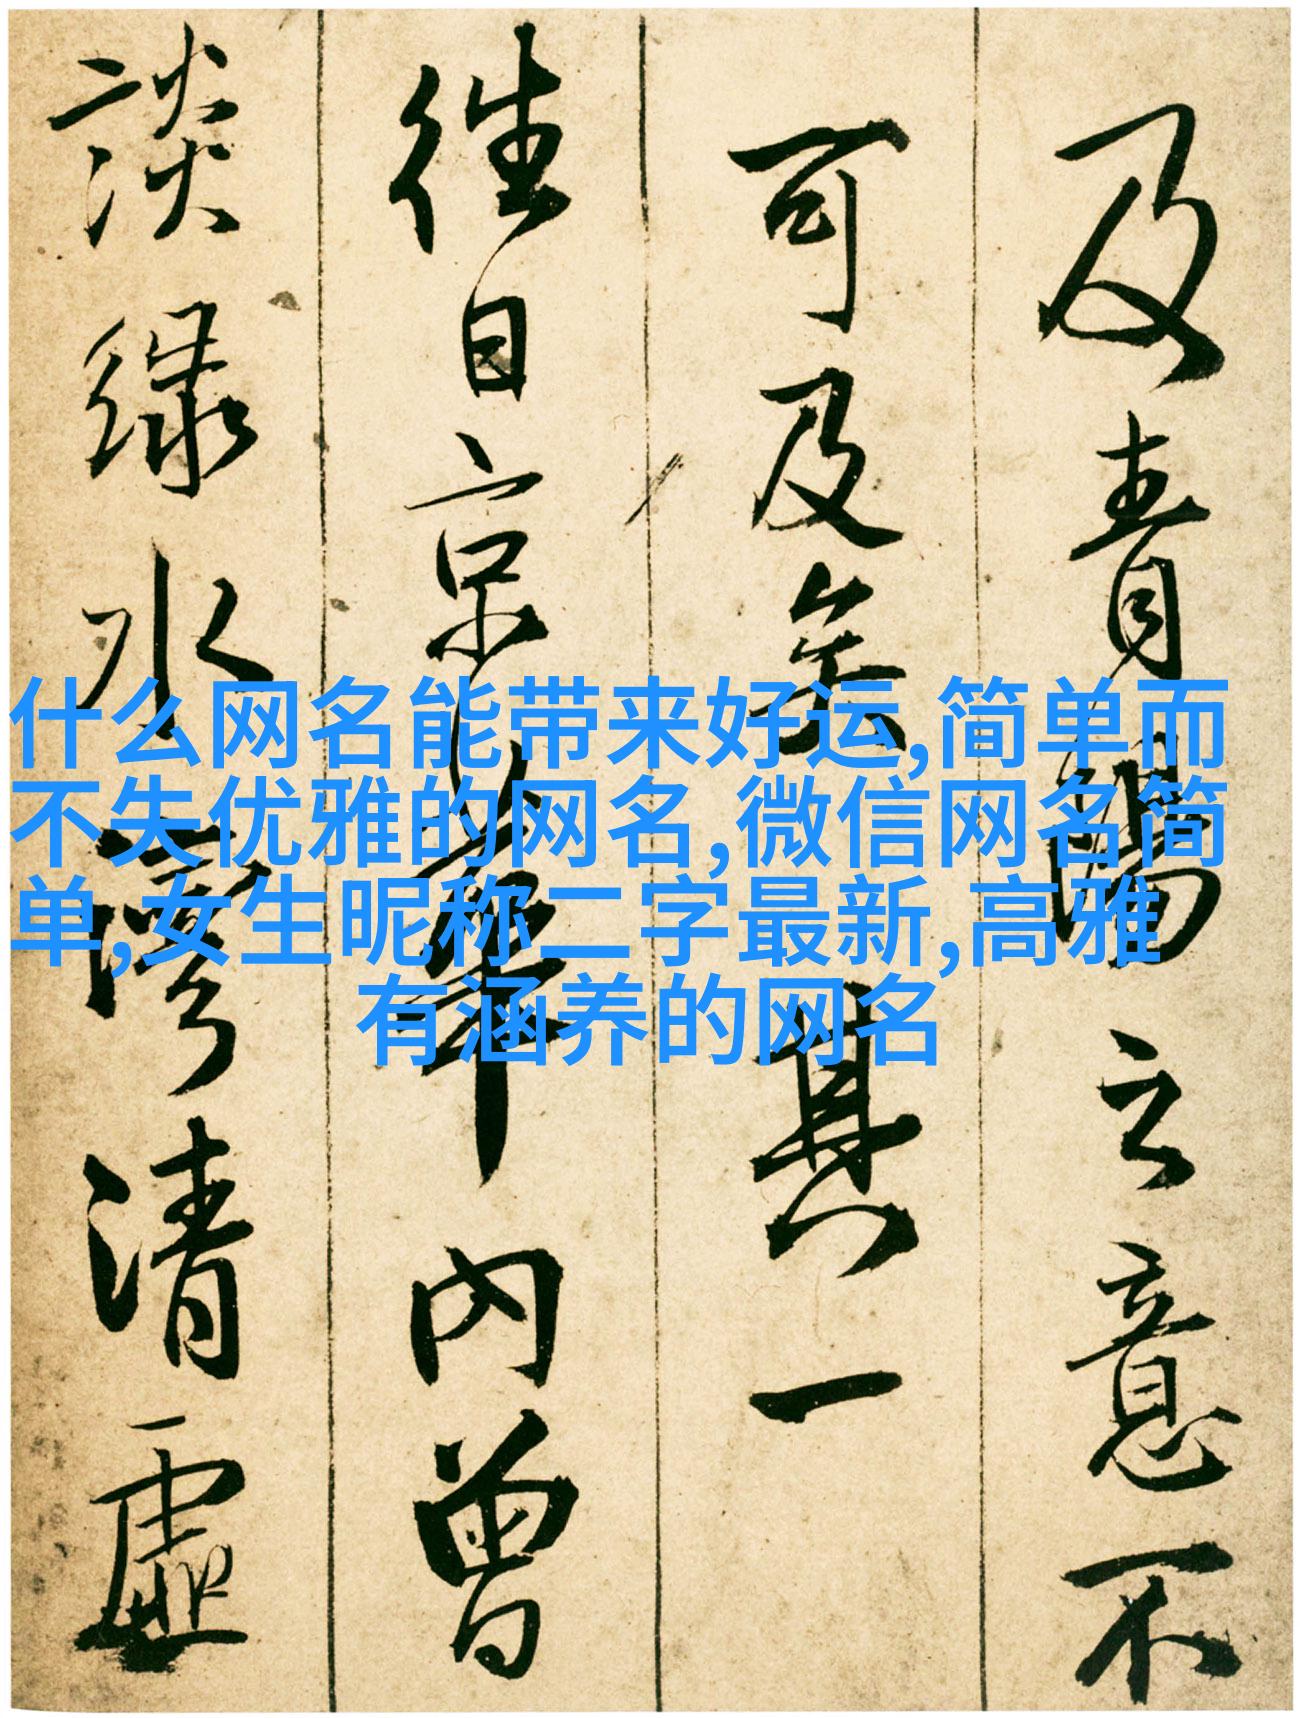 及青陽之意不
可及矣其一
往日京華內曾
談綠水灣清虛
什么网名能带来好运,简单而
不失优雅的网名,微信网名简
单,女生昵称二字最新,高雅
有涵养的网名